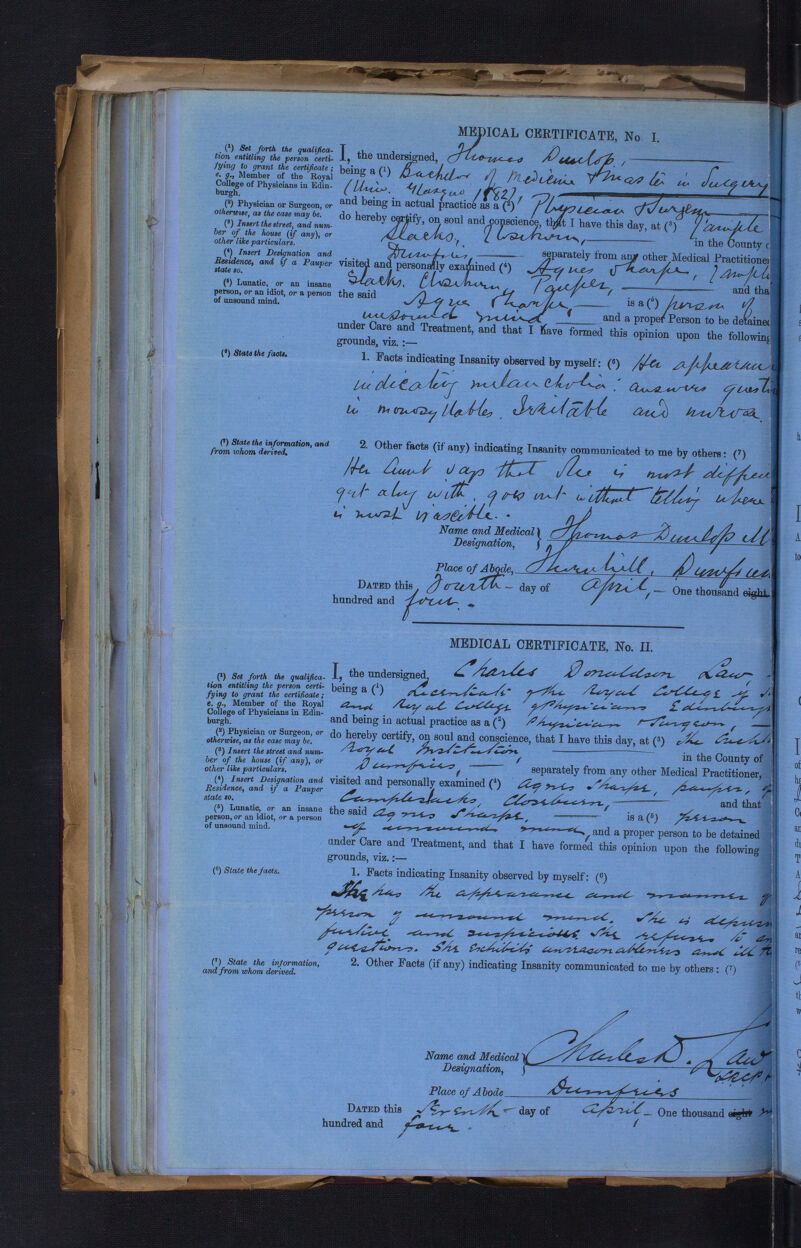 MEDICAL CERTIFICATE, No I.
(¹) Set forth the qualifica-
tion entitling the person certi-
fying to grant the certificate;
e. g., Member of the Royal
College of Physicians in Edin-
burgh.
(²) Physician or Surgeon, or
otherwise, as the case may be.
(³) Insert the street, and num-
ber of the house (if any), or
other like particulars.
(⁴) Insert Designation and
Residence, and if a Pauper
state so.
(⁵) Lunatic, or an insane
person, or an idiot, or a person
of unsound mind.
I, the undersigned, Thomas Dunlop,
being a (¹) Bachelor of Medicine & Master in Surgery
(Univ. Glasgow 1882),
and being in actual practice as a (²) Physician & Surgeon
do hereby certify, on soul and conscience, that I have this day, at (³) Cample
Slacks, Closeburn, in the County
Dumfries, separately from any other Medical Practitioner
visited and personally examined (⁴) Agnes Sharpe, Cample
Slacks. Closeburn, Pauper, and tha
the said Agnes Sharpe, is a (⁵) person of
unsound mind and a proper Person to be detained
under Care and Treatment, and that I have formed this opinion upon the following
grounds, viz. :—
(⁶) State the facts.
1. Facts indicating Insanity observed by myself: (⁶) Her appearan
indicating melancholia: answers questi
in monosyllables. Irritable and nervous.
(⁷) State the information, and
from whom derived.
2. Other facts (if any) indicating Insanity communicated to me by others: (⁷)
Her Aunt says that she is most difficu
get along with, goes out without telling where
is most irascible.
Name and Medical
Designation, Thomas Dunlop M
Place of Abode, Thornhill, Dumfries
DATED this Fourth day of April, One thousand eight
hundred and four.
MEDICAL CERTIFICATE, No. II.
(¹) Set forth the qualifica-
tion entitling the person certi-
fying to grant the certificate;
e. g., Member of the Royal
College of Physicians in Edin-
burgh.
(²) Physician or Surgeon, or
otherwise, as the case may be.
(³) Insert the street and num-
ber of the house (if any), or
other like particulars.
(⁴) Insert Designation and
Residence, and if a Pauper
state so.
(⁵) Lunatic, or an insane
person, or an idiot, or a person
of unsound mind.
I, the undersigned, Charles Donaldson Law,
being a (¹) Licentiate of the Royal College of S
and Royal College of Physicians Edinburgh
and being in actual practice as a (²) Physician & Surgeon,
do hereby certify, on soul and conscience, that I have this day, at (³) The Crich
Royal Institution in the County of
Dumfries, separately from any other Medical Practitioner,
visited and personally examined (⁴) Agnes Sharpe, pauper, of
Campleslacks, Closeburn, and that
the said Agnes Sharpe, is a (⁵) person
of unsound mind, and a proper person to be detained
under Care and Treatment, and that I have formed this opinion upon the following
grounds, viz. :—
(⁶) State the facts.
1. Facts indicating Insanity observed by myself: (⁶)
She has the appearance and manner of
person of unsound mind. She is depress
furtive and suspicious. She refuses to an
questions. She exhibits unreasonableness and ill te
(⁷) State the information,
and from whom derived.
2. Other Facts (if any) indicating Insanity communicated to me by others: (⁷)
Name and Medical
Designation, Charles D. Law
LRCP
Place of Abode Dumfries
DATED this Seventh day of April One thousand eight
hundred and four.